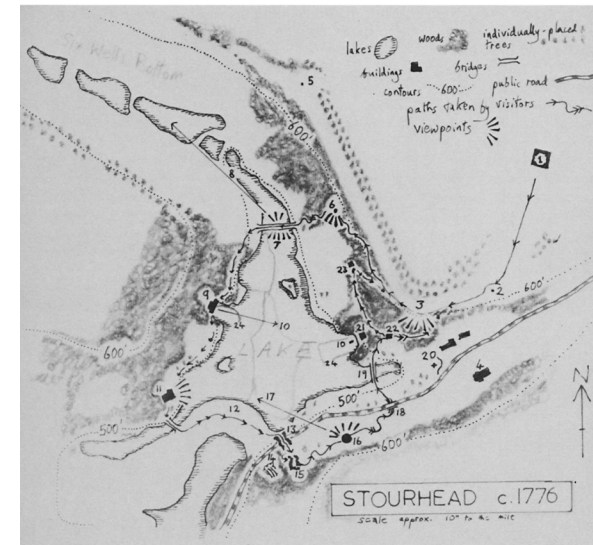 lakes woods individually-placed
trees
buildings bridges
contours 600' public road
paths taken by visitors
viewpoints
Six Wells Bottom
5
600'
1
8
6
7
3
2
600'
23
9
24
10
21
22
10
600'
LAKE
20
24
19
4
11
17
500'
12
18
N
500'
13
16
600'
14
15
STOURHEAD c.1776
scale approx.